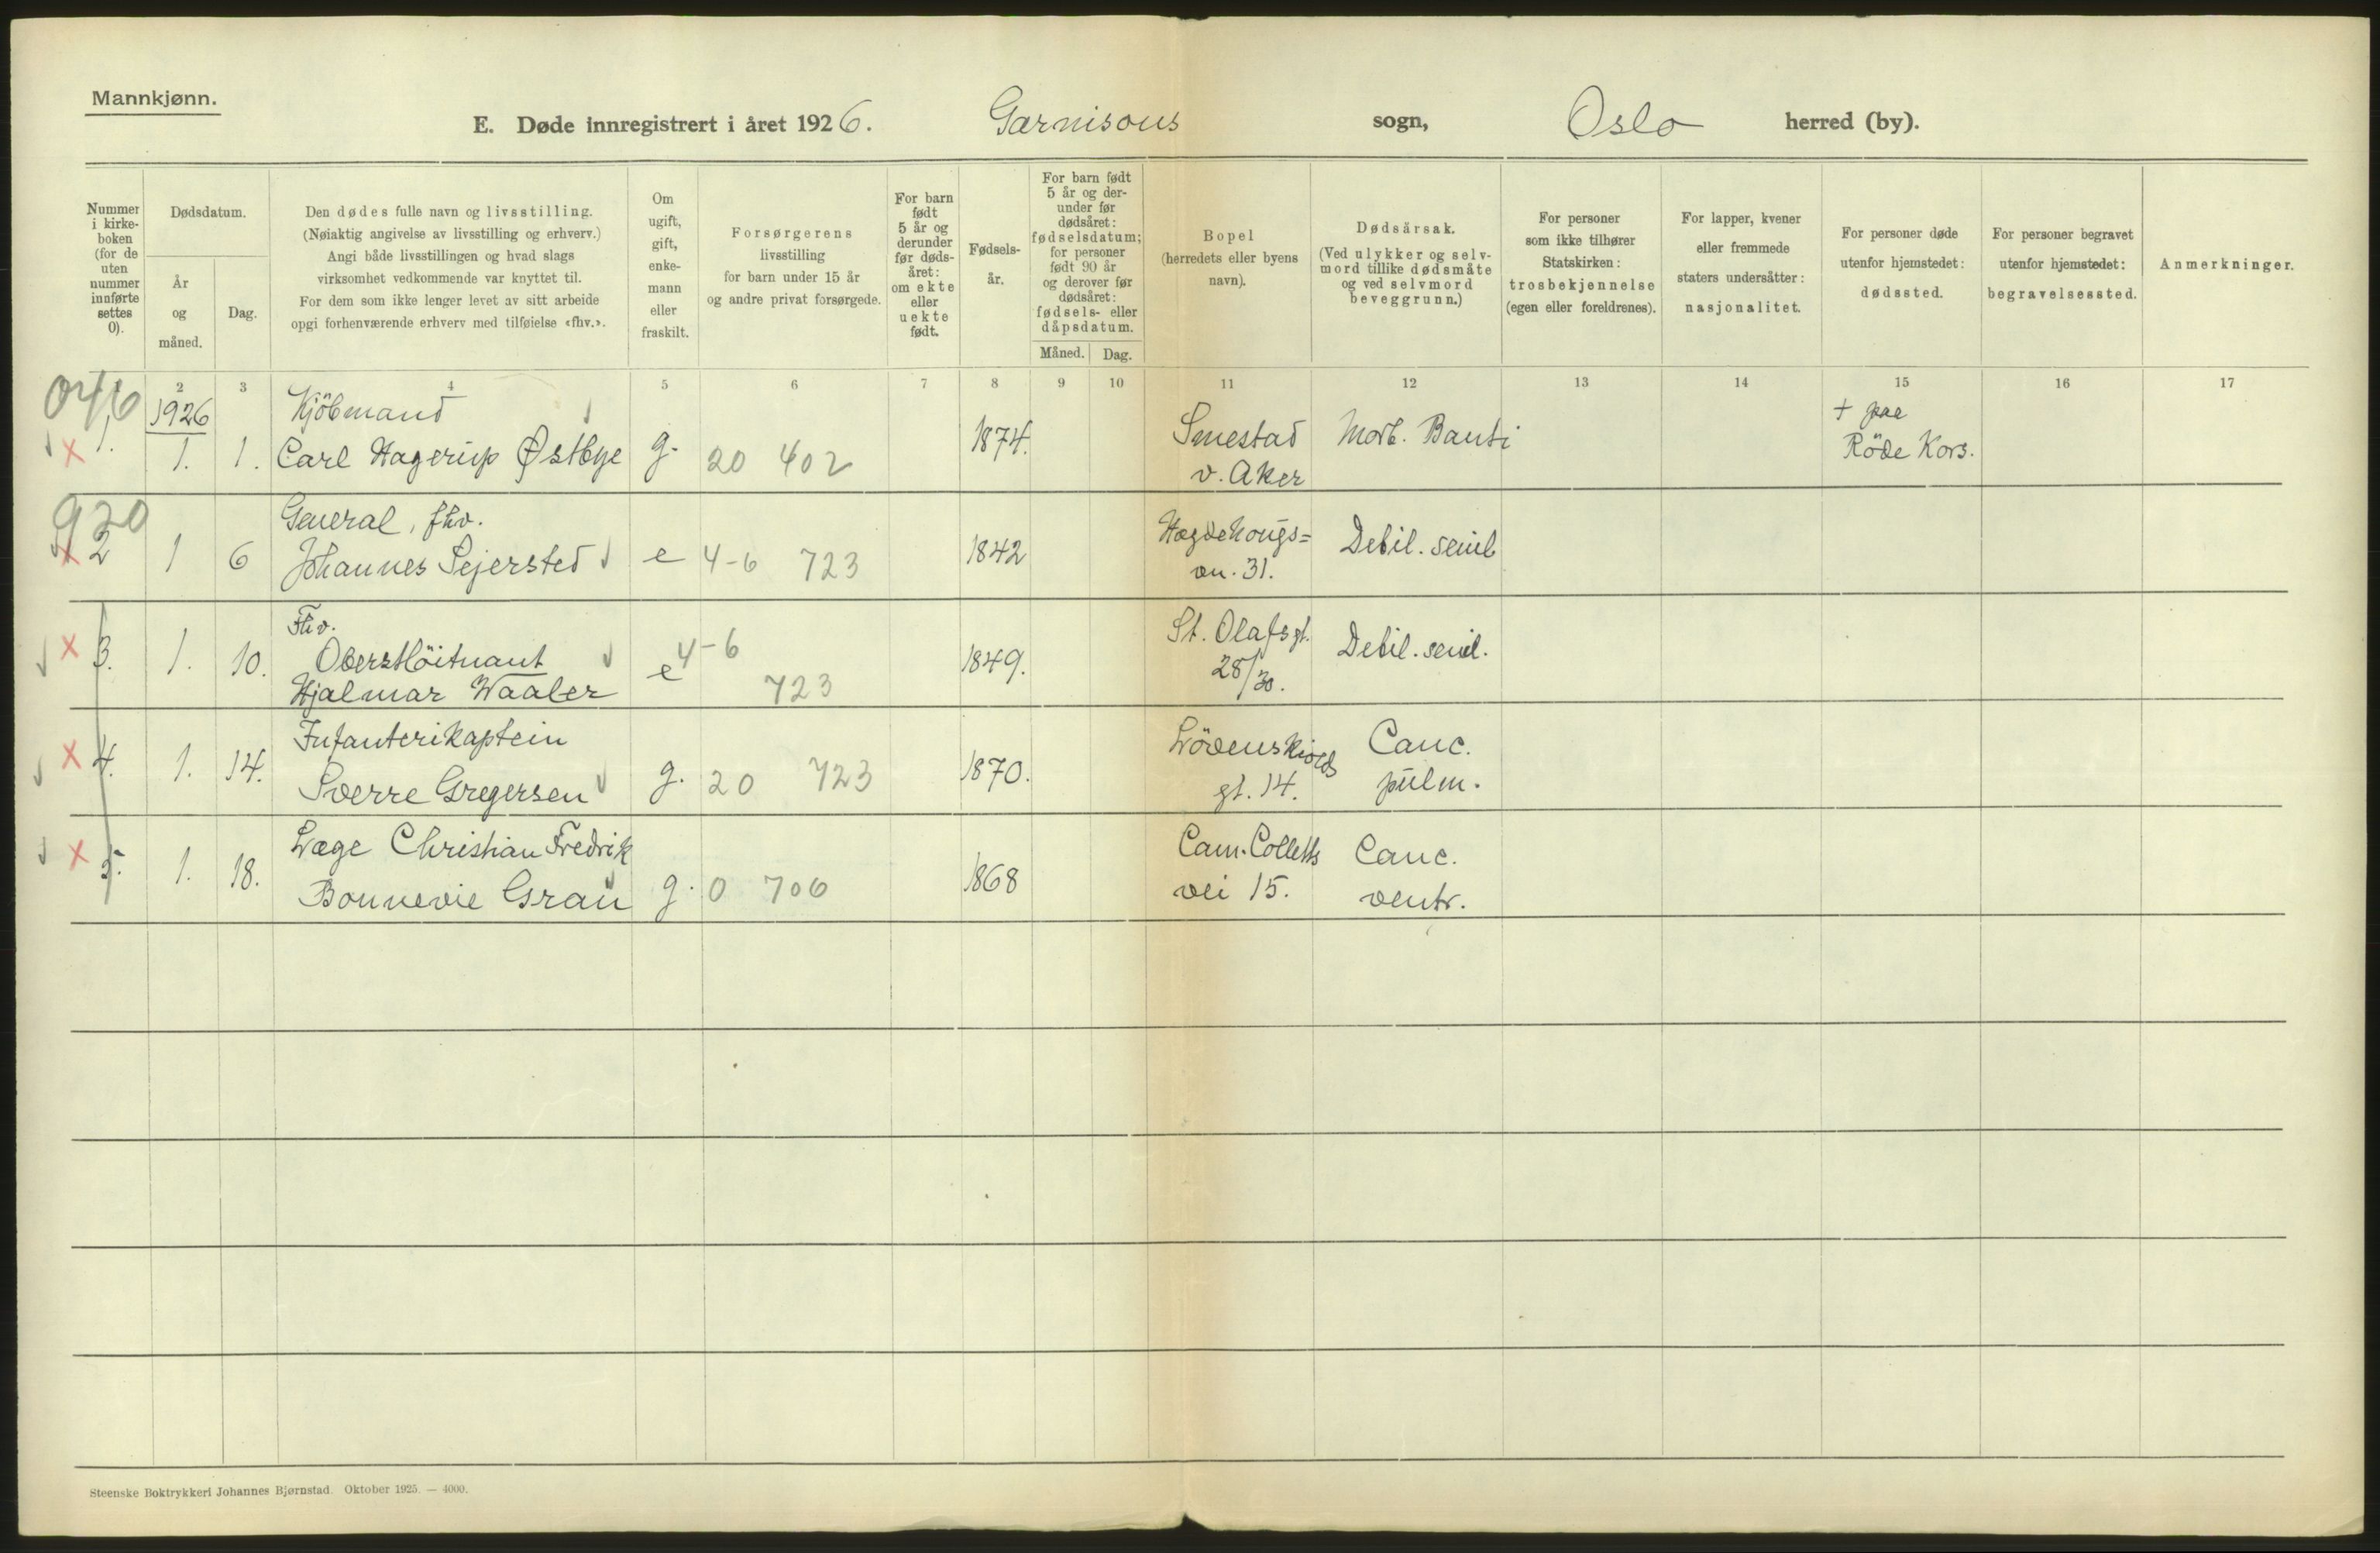 Mannkjønn.
E. Døde innregistrert i året 1926. Garnisons sogn, Oslo herred (by).
Nummer i kirke- boken (for de uten nummer innførte settes 0).
Dødsdatum.
År og måned.
Dag.
Den dødes fulle navn og livsstilling.
(Nøiaktig angivelse av livsstilling og erhverv.)
Angi både livsstillingen og hvad slags
virksomhet vedkommende var knyttet til.
For dem som ikke lenger levet av sitt arbeide
opgi forhenværende erhverv med tilføielse «fhv.».
Om ugift, gift, enke- mann eller fraskilt.
Forsørgerens
livsstilling
for barn under 15 år
og andre privat forsørgede.
For barn født 5 år og derunder før døds- året: om ekte eller uekte født.
Fødsels- år.
For barn født 5 år og der- under før dødsåret: fødselsdatum; for personer født 90 år og derover før dødsåret: fødsels- eller dåpsdatum.
Måned. Dag.
Bopel
(herredets eller byens
navn).
Dødsårsak.
(Ved ulykker og selv-
mord tillike dødsmåte
og ved selvmord
beveggrunn.)
For personer
som ikke tilhører
Statskirken:
trosbekjennelse
(egen eller foreldrenes).
For lapper, kvener
eller fremmede
staters undersåtter:
nasjonalitet.
For personer døde
utenfor hjemstedet:
dødssted.
For personer begravet
utenfor hjemstedet:
begravelsessted.
Anmerkninger.
2 3 4 5 6 7 8 9 10 11 12 13 14 15 16 17
1926 Kjöbmand + paa
1. 1. 1. Carl Hagerup Østbye g. 20 402 1874. Smestad Morb. Banti Röde Kors.
v. Aker
920
General, fhv. Hægdehougs=
2 1 6 Johannes Sejersted e 4-6 723 1842 vn. 31. Debil. senil
Fhv. St. Olafsgt.
3. 1. 10. Oberstlöitnant e 4-6 1849. 28/30. Debil. senil.
Hjalmar Waaler 723
Infanterikaptein Lövenskiolds Canc.
4. 1. 14. Sverre Gregersen g. 20 723 1870. gt. 14. pulm.
Læge Christian Fredrik Cam. Colletts Canc.
5. 1. 18. Bonnevie Grau g. 0 706 1868 vei 15. ventr.
Steenske Boktrykkeri Johannes Bjørnstad. Oktober 1925. — 4000.